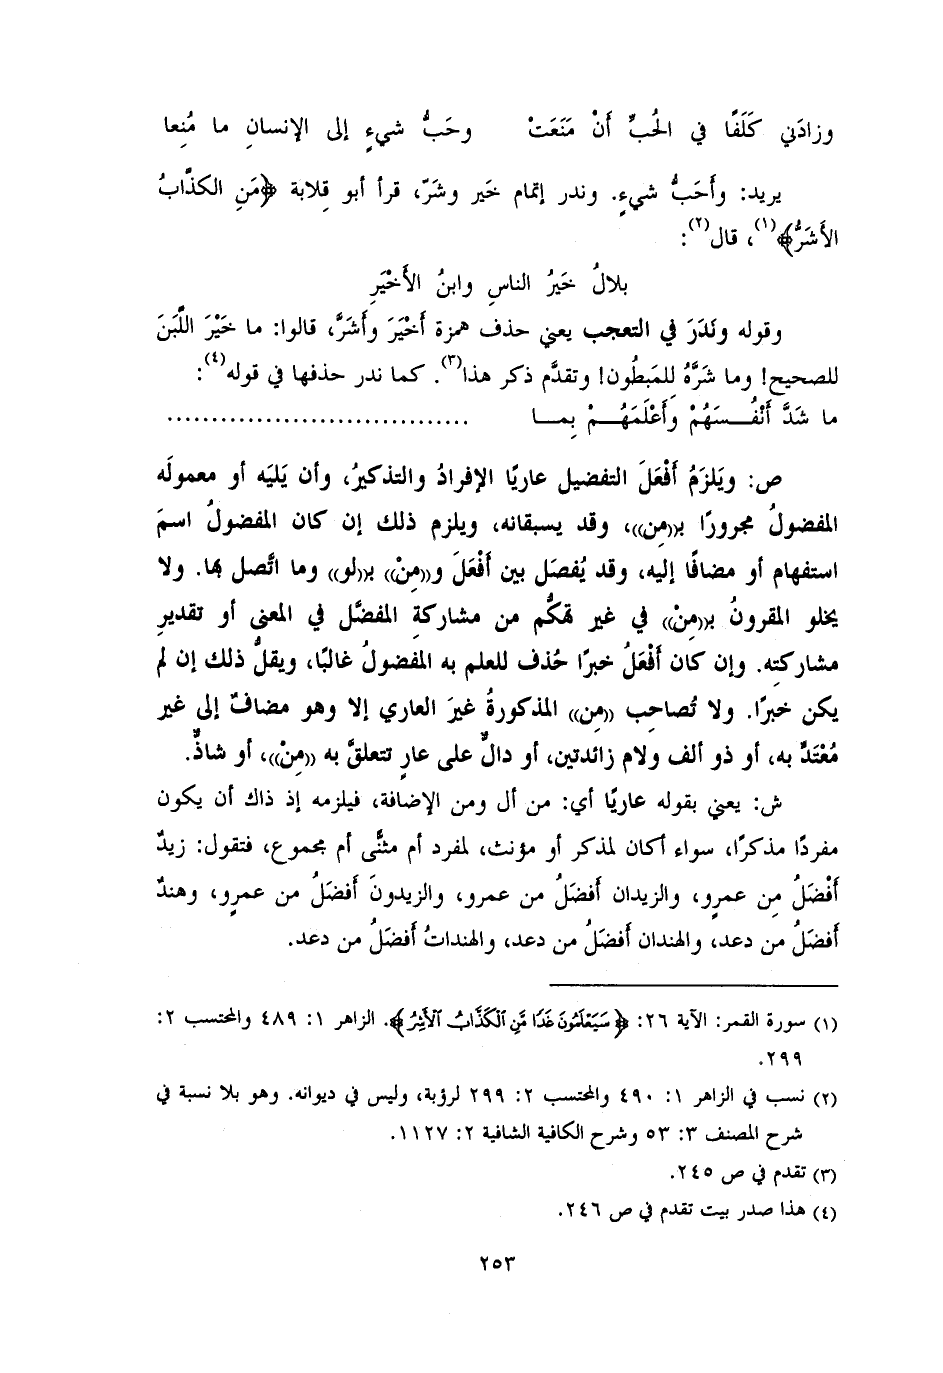 وزادَني كَلَفًا في الحُبِّ أَنْ مَنَعَتْ وحَبُّ شيءٍ إلى الإنسانِ ما مُنِعا
يريد: وأَحَبُّ شيءٍ. وندر إتمام خَير وشَرّ، قرأ أبو قِلابة ﴿مَنِ الكذَّابُ
الأَشَرُّ﴾(١)، قال(٢):
بلالُ خَيرُ الناسِ وابنُ الأَخْيَرِ
وقوله ونَدَرَ في التعجب يعني حذف همزة أَخْيَرَ وأَشَرَّ، قالوا: ما خَيْرَ اللَّبَنَ
للصحيح! وما شَرَّهُ لِلمَبطُون! وتقدَّم ذكر هذا(٣). كما ندر حذفها في قوله(٤):
ما شَدَّ أَنْفُــسَهُمْ وأَعْلَمَهُــمْ بِمــا ................................
ص: ويَلزَمُ أَفْعَلَ التفضيل عاريًا الإفرادُ والتذكيرُ، وأن يَليَه أو معمولَه
المفضولُ مجرورًا بـ((مِن))، وقد يسبقانه، ويلزم ذلك إن كان المفضولُ اسمَ
استفهام أو مضافًا إليه، وقد يُفصَل بين أَفْعَلَ و((مِنْ)) بـ((لو)) وما اتَّصل بها. ولا
يخلو المقرونُ بـ((مِنْ)) في غير تهكُّم من مشاركةِ المفضَّل في المعنى أو تقديرِ
مشاركتِه. وإن كان أَفْعَلُ خبرًا حُذف للعلم به المفضولُ غالبًا، ويقلُّ ذلك إن لم
يكن خبرًا. ولا تُصاحِب ((مِن)) المذكورةُ غيرَ العاري إلا وهو مضافٌ إلى غير
مُعْتَدٍّ به، أو ذو ألف ولام زائدتين، أو دالٌّ على عارٍ تتعلقَّ به ((مِنْ))، أو شاذٌّ.
ش: يعني بقوله عاريًا أي: من أل ومن الإضافة، فيلزمه إذ ذاك أن يكون
مفردًا مذكرًا، سواء أكان لمذكر أو مؤنث، لمفرد أم مثنًّى أم مجموع، فتقول: زيدٌ
أَفْضَلُ مِن عمرٍو، والزيدان أَفضَلُ من عمرو، والزيدونَ أَفضَلُ من عمرٍو، وهندٌ
أَفضَلُ من دعد، والهندان أَفضَلُ من دعد، والهنداتُ أَفضَلُ من دعد.
(١) سورة القمر: الآية ٢٦: ﴿سَيَعْلَمُونَ غَدًا مَّنِ ٱلْكَذَّابُ ٱلْأَشِرُ﴾. الزاهر ١: ٤٨٩ والمحتسب ٢:
٢٩٩.
(٢) نسب في الزاهر ١: ٤٩٠ والمحتسب ٢: ٢٩٩ لرؤبة، وليس في ديوانه. وهو بلا نسبة في
شرح المصنف ٣: ٥٣ وشرح الكافية الشافية ٢: ١١٢٧.
(٣) تقدم في ص ٢٤٥.
(٤) هذا صدر بيت تقدم في ص ٢٤٦.
٢٥٣